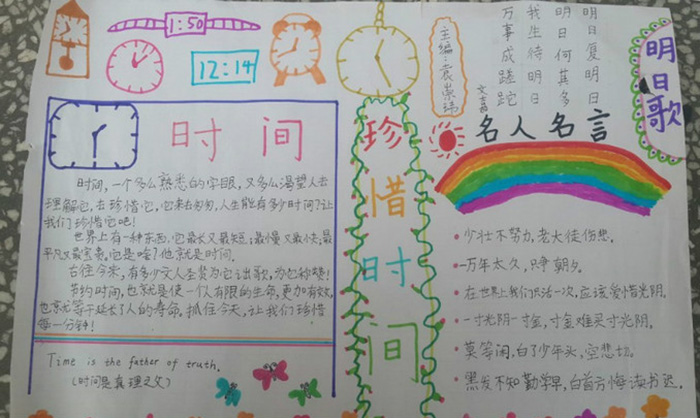 1:50
12:14
时间
时间,一个多么熟悉的字眼,又多么渴望人去
理解它,去珍惜它,它来去匆匆,人生能有多少时间?让
我们珍惜它吧!
世界上有一种东西,它最长又最短;最慢又最快;最
平凡又最宝贵,它是啥?他就是时间.
古往今来,有多少文人圣贤为它讴歌,为它
节约时间,也就是使一个人有限的生命,更加有效,
也就等于延长了人的寿命,抓住今天,让我们珍惜
每一分钟!
Time is the father of truth.
(时间是真理之父)
珍惜时间
主编:袁崇
明日歌
文嘉
明日复明日
明日何其多
我生待明日
万事成蹉跎
名人名言
少壮不努力,老大徒伤悲.
一万年太久,只争朝夕.
在世界上我们只活一次,应该爱惜光阴.
一寸光阴一寸金,寸金难买寸光阴.
莫等闲,白了少年头,空悲切.
黑发不知勤学早,白首方悔读书迟.